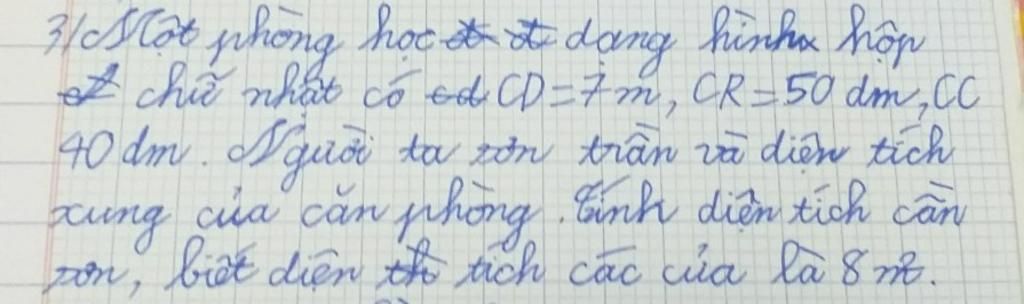 3/ Một phòng học dạng hình hộp
chữ nhật có CD = 7 m, CR = 50 dm, CC
40 dm. Người ta sơn trần và diện tích
xung của căn phòng. Tính diện tích cần
sơn, biết diện tích các cửa là 8 m².